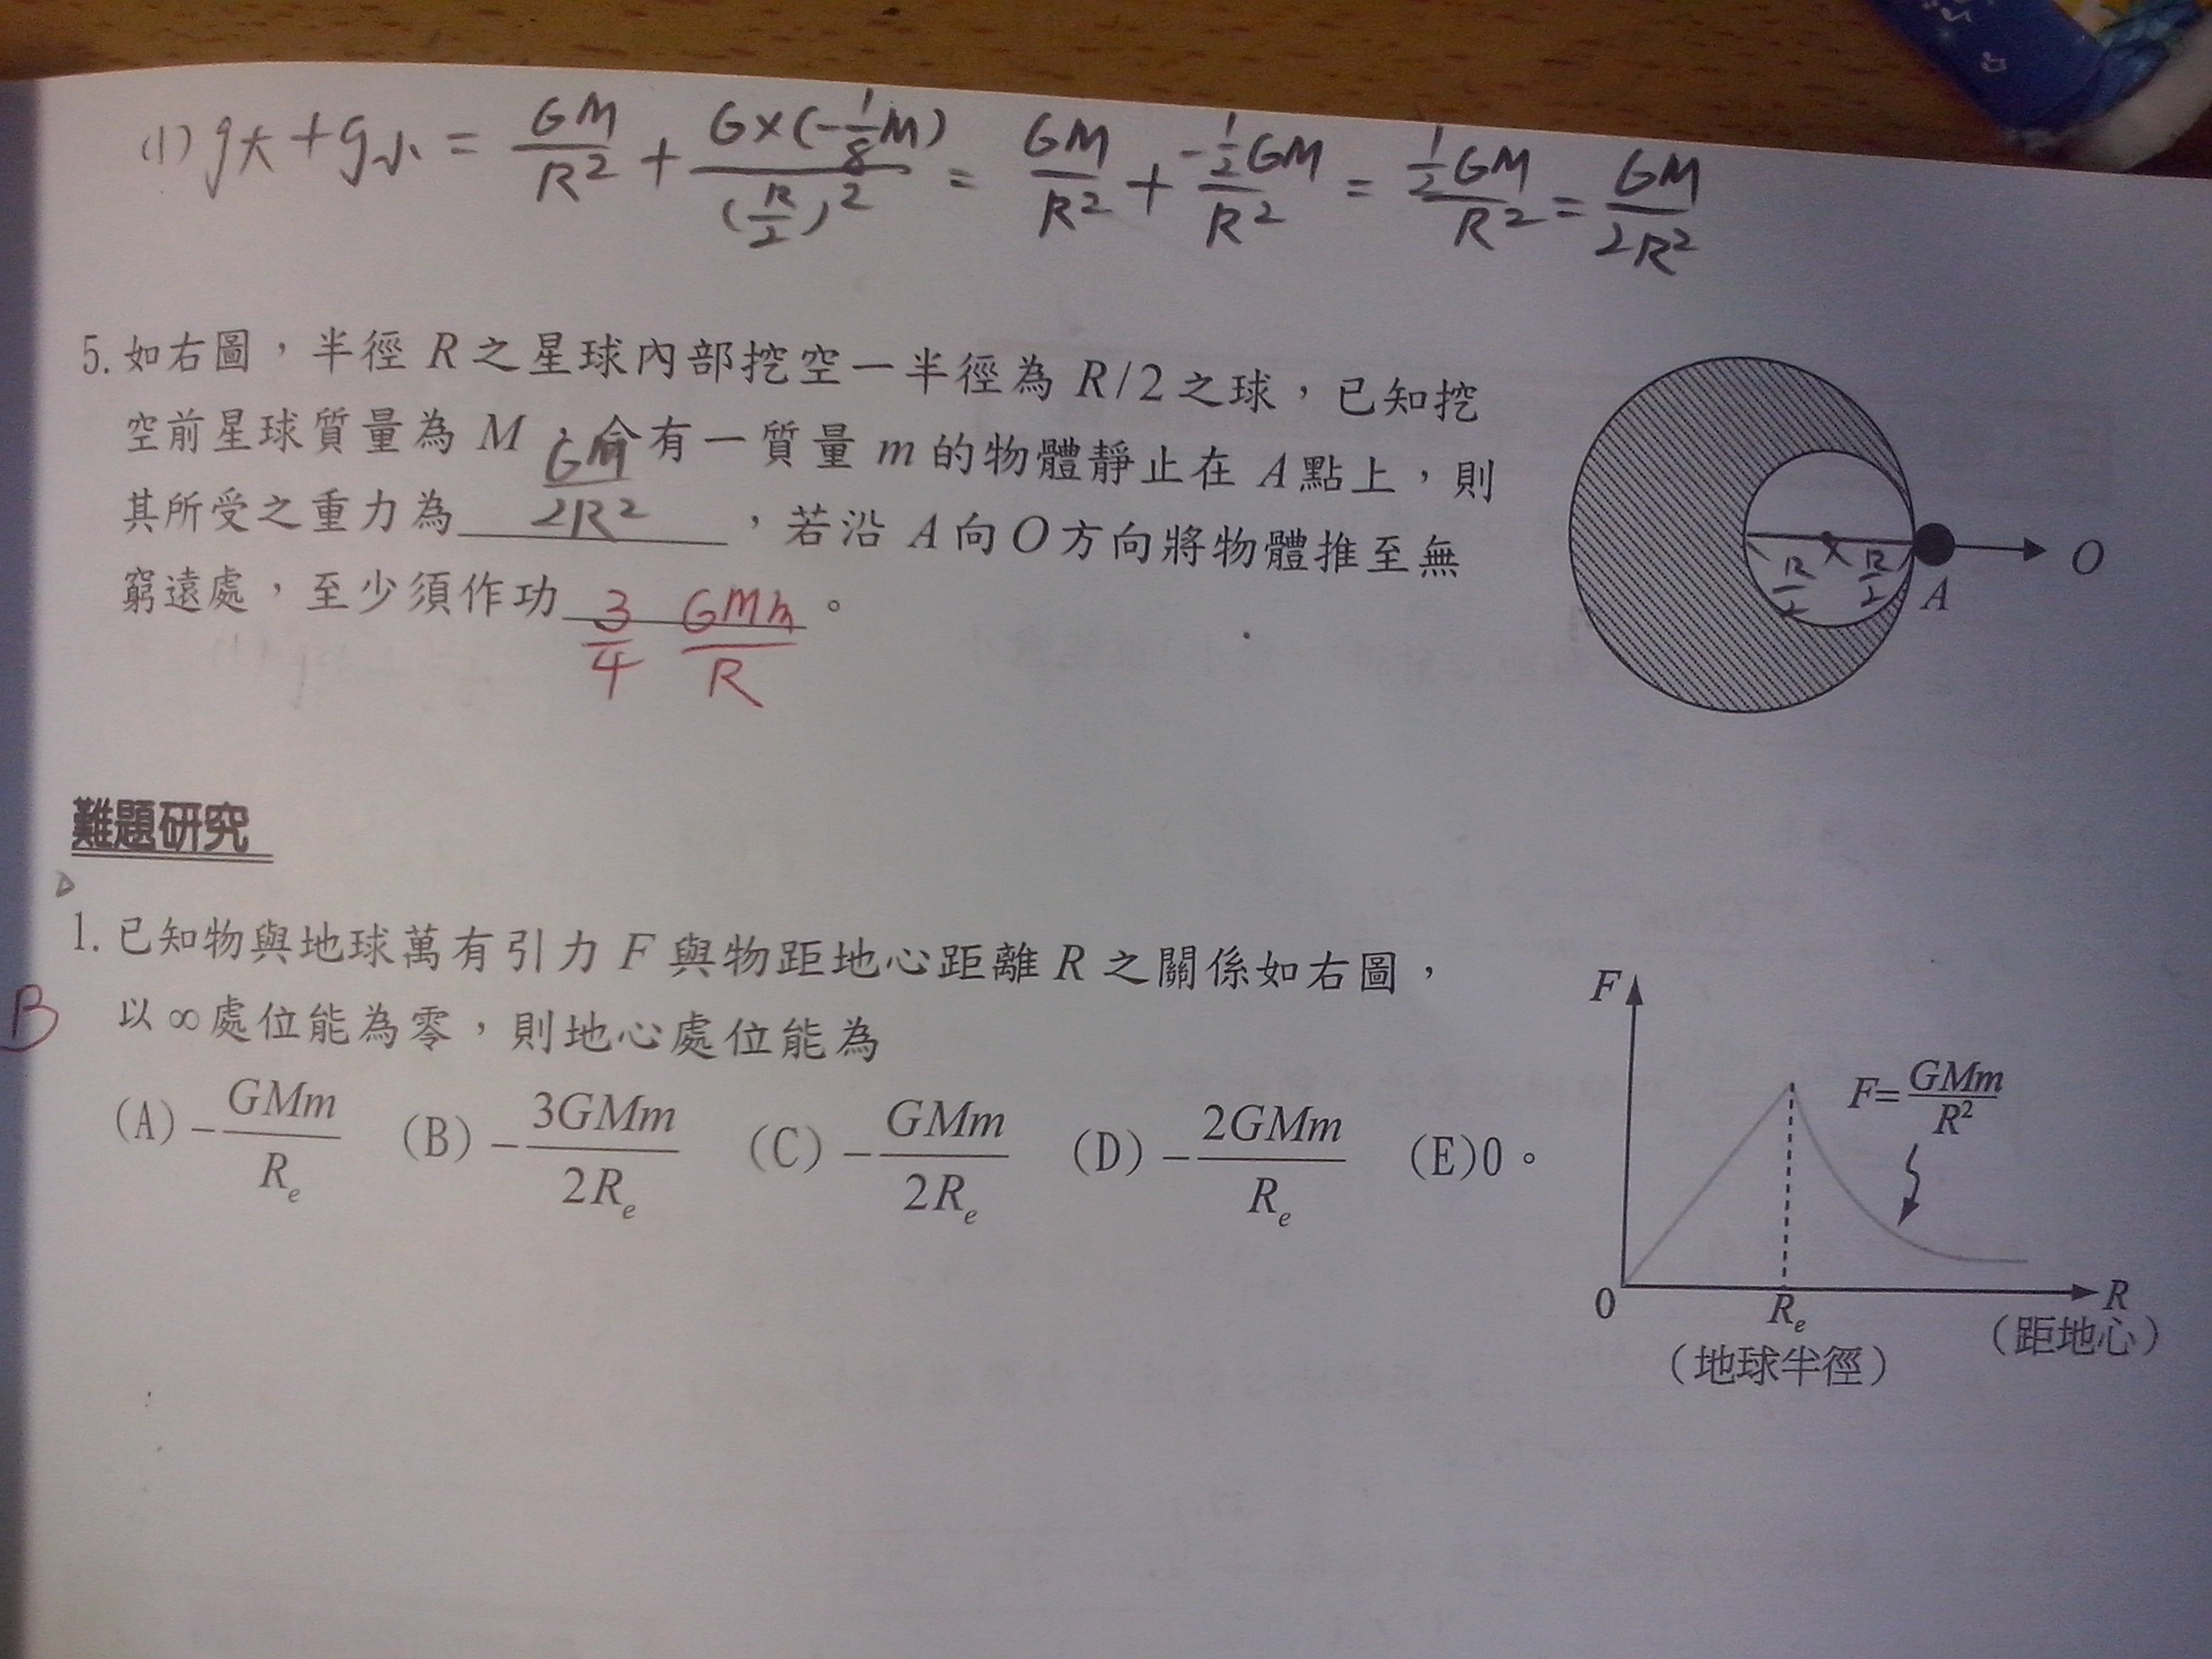 (1) g大 + g小 = GM/R² + G×(-1/8M)/(R/2)² = GM/R² + -1/2GM/R² = 1/2GM/R² = GM/2R²
5. 如右圖，半徑 R 之星球內部挖空一半徑為 R/2 之球，已知挖
空前星球質量為 M，今有一質量 m 的物體靜止在 A 點上，則
其所受之重力為 GM/2R² ，若沿 A 向 O 方向將物體推至無
窮遠處，至少須作功 3/4 GMm/R 。
R/2 R/2
A
O
難題研究
B
1. 已知物與地球萬有引力 F 與物距地心距離 R 之關係如右圖，
以∞處位能為零，則地心處位能為
(A) -GMm/Re (B) -3GMm/2Re (C) -GMm/2Re (D) -2GMm/Re (E)0。
F
F=GMm/R²
0 Re R
(地球半徑) (距地心)